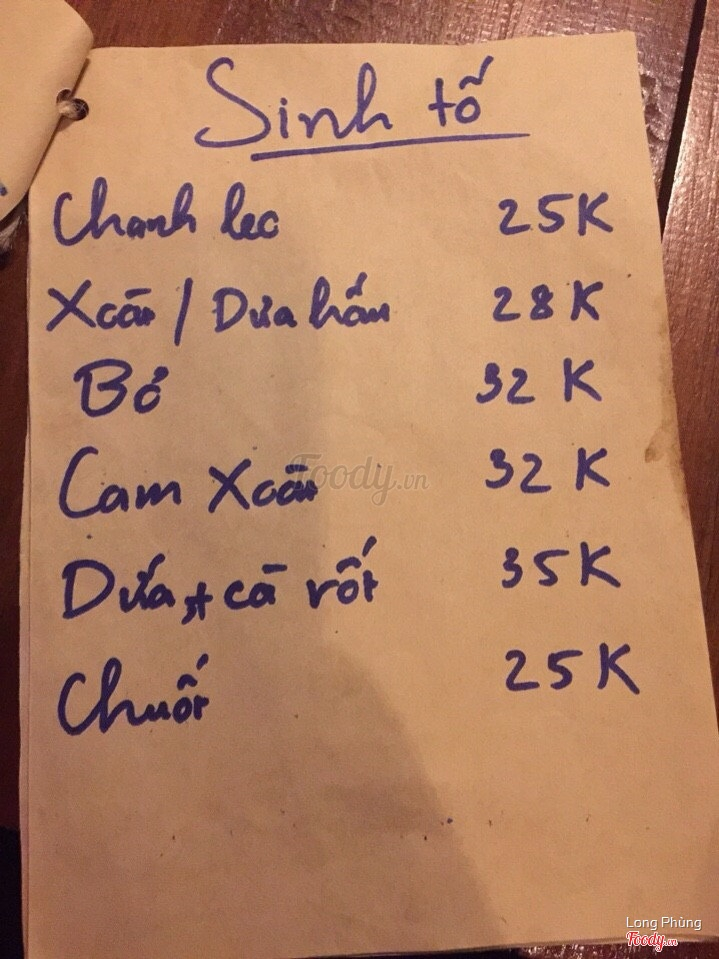 Sinh tố
Chanh leo 25K
Xoài / Dưa hấu 28K
Bơ 32K
Cam Xoài 32K
Dứa + cà rốt 35K
Chuối 25K
Foody.vn
Long Phùng
Foody.vn